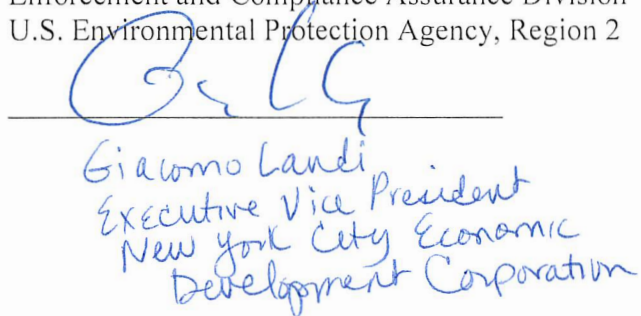 Enforcement and Compliance Assurance Division
U.S. Environmental Protection Agency, Region 2
Giacomo Landi
Executive Vice President
New York City Economic
Development Corporation